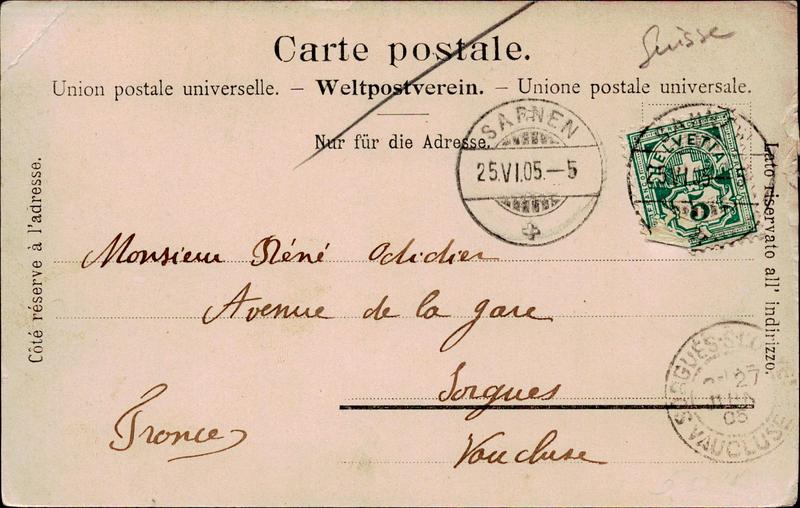 Carte postale.
Suisse
Union postale universelle. – Weltpostverein. – Unione postale universale.
Nur für die Adresse.
SARNEN
25.VI.05.–5
HELVETIA
5
Côté réservé à l'adresse.
Lato riservato all' indirizzo.
Monsieur Réné Didier
Avenue de la gare
Sorgues
Vaucluse
France
SORGUES-S-L'OUVÈZE
27
JUIN
05
VAUCLUSE